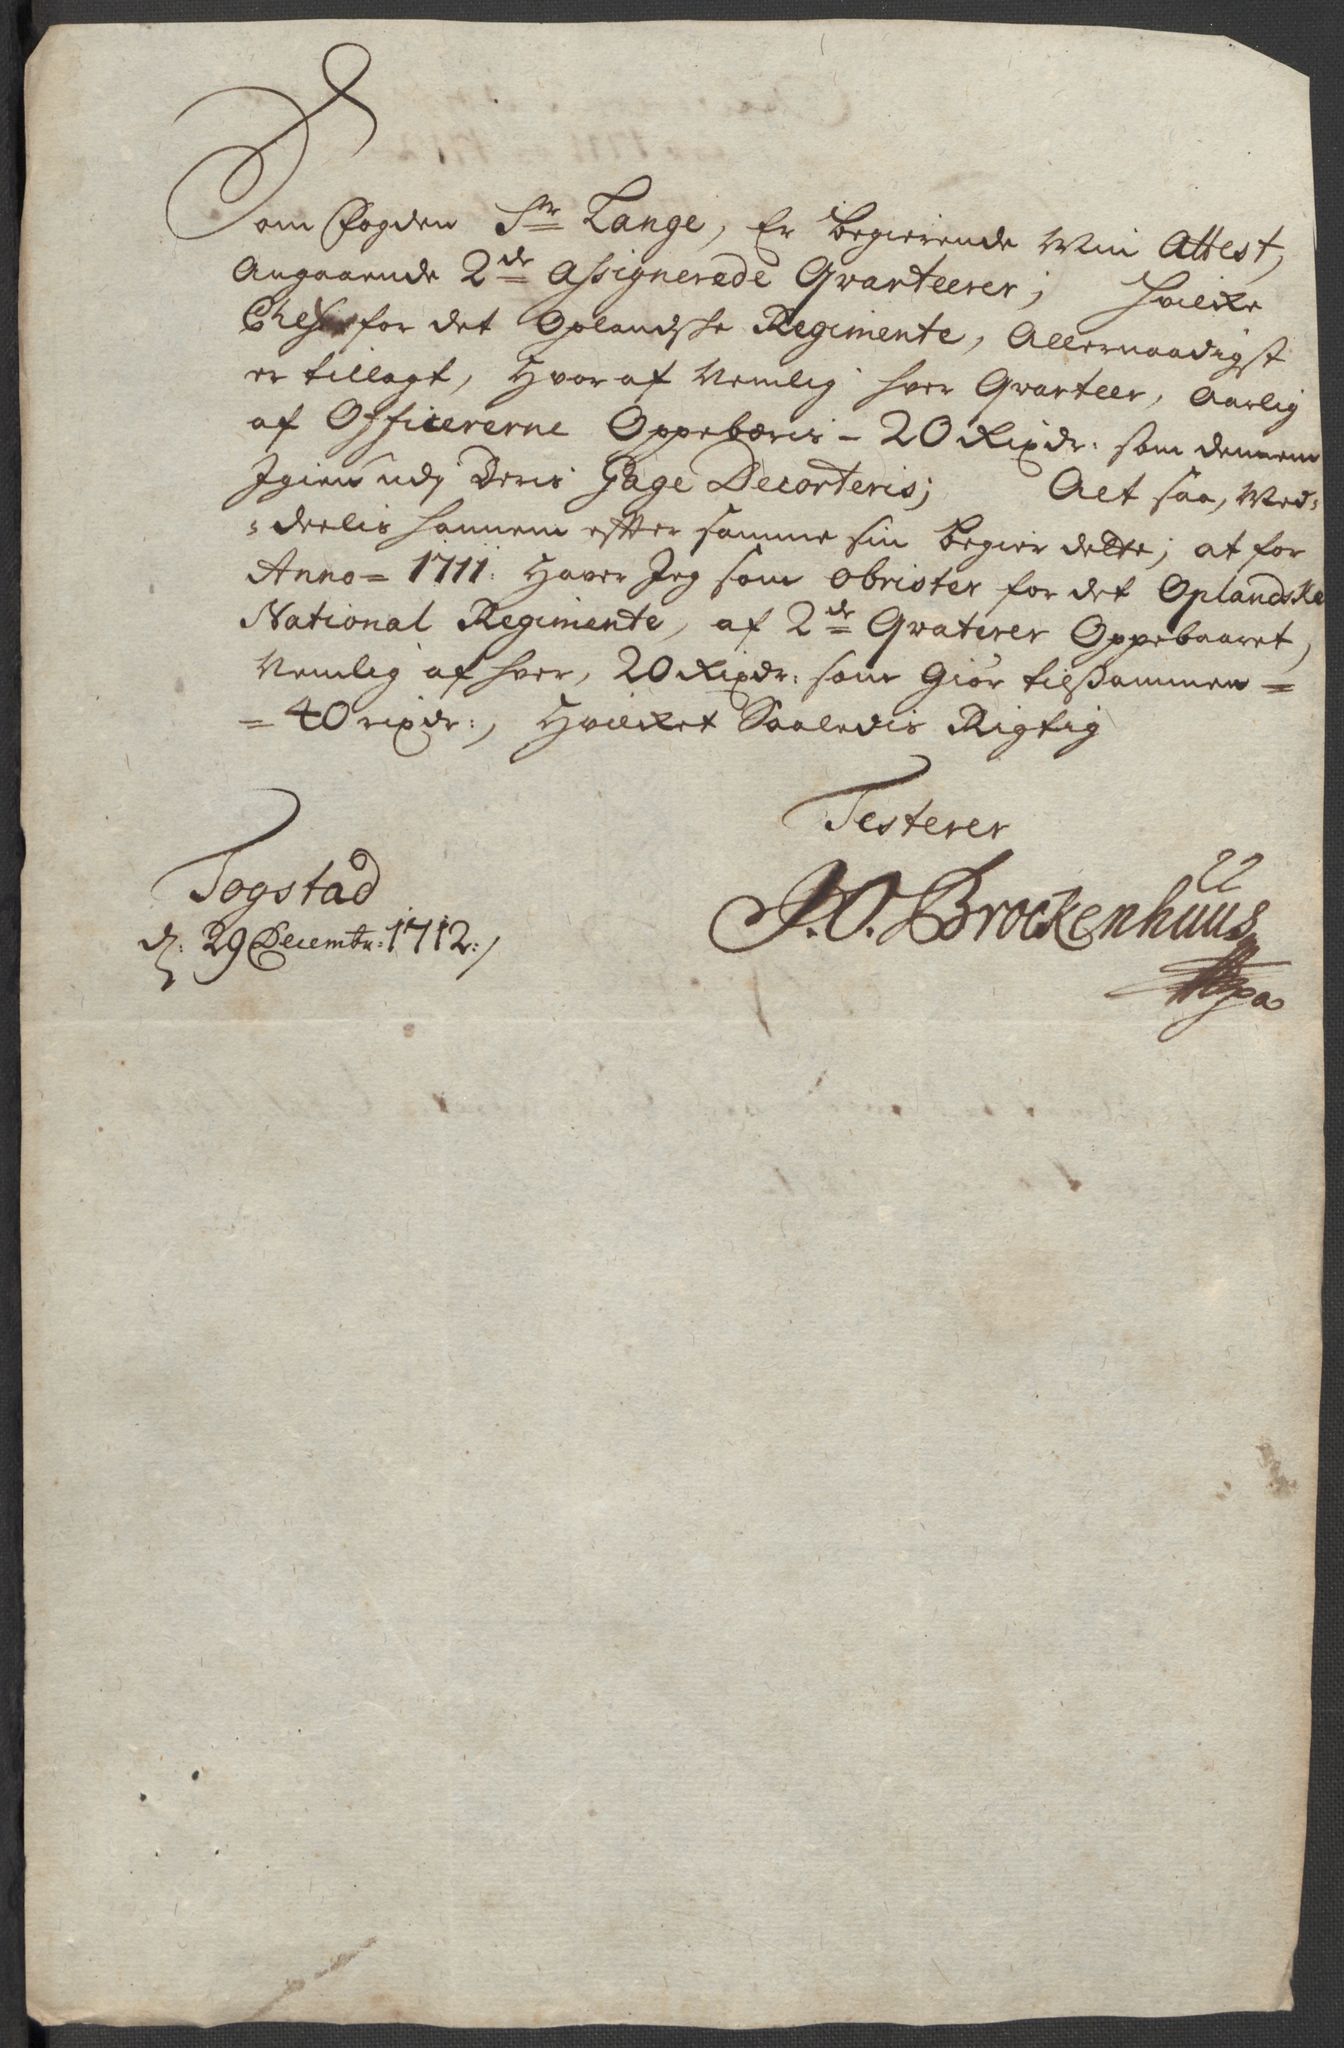 Som Fogden Sr Lange, Er begierende Min Attest,
Angaaende 2de Assignerede Qvarteerer; hvilke
Chefer for det Oplandske Regimente, Allernaadigst
er tillagt, Hvoraf Nemlig hver Qvarteer, Aarlig
af Officererne Oppebæris - 20 Rixdr: som dennem
Igien udj Deris Gage Decorteris; Alt saa, Med=
=deelis hannem effter samme sin begier dette; at for
Anno = 1711: Haver Jeg som Obrister for det Oplandske
National Regimente, af 2de Qvaterer Oppebaaret,
Nemlig af hver, 20 Rixdr: som Giør tilsammen =
= 40 rixdr:, Hvilket Saaledis Rigtig
Testerer
Togstad
d: 29 Decembr: 1712:/
J. O. Brockenhüüs